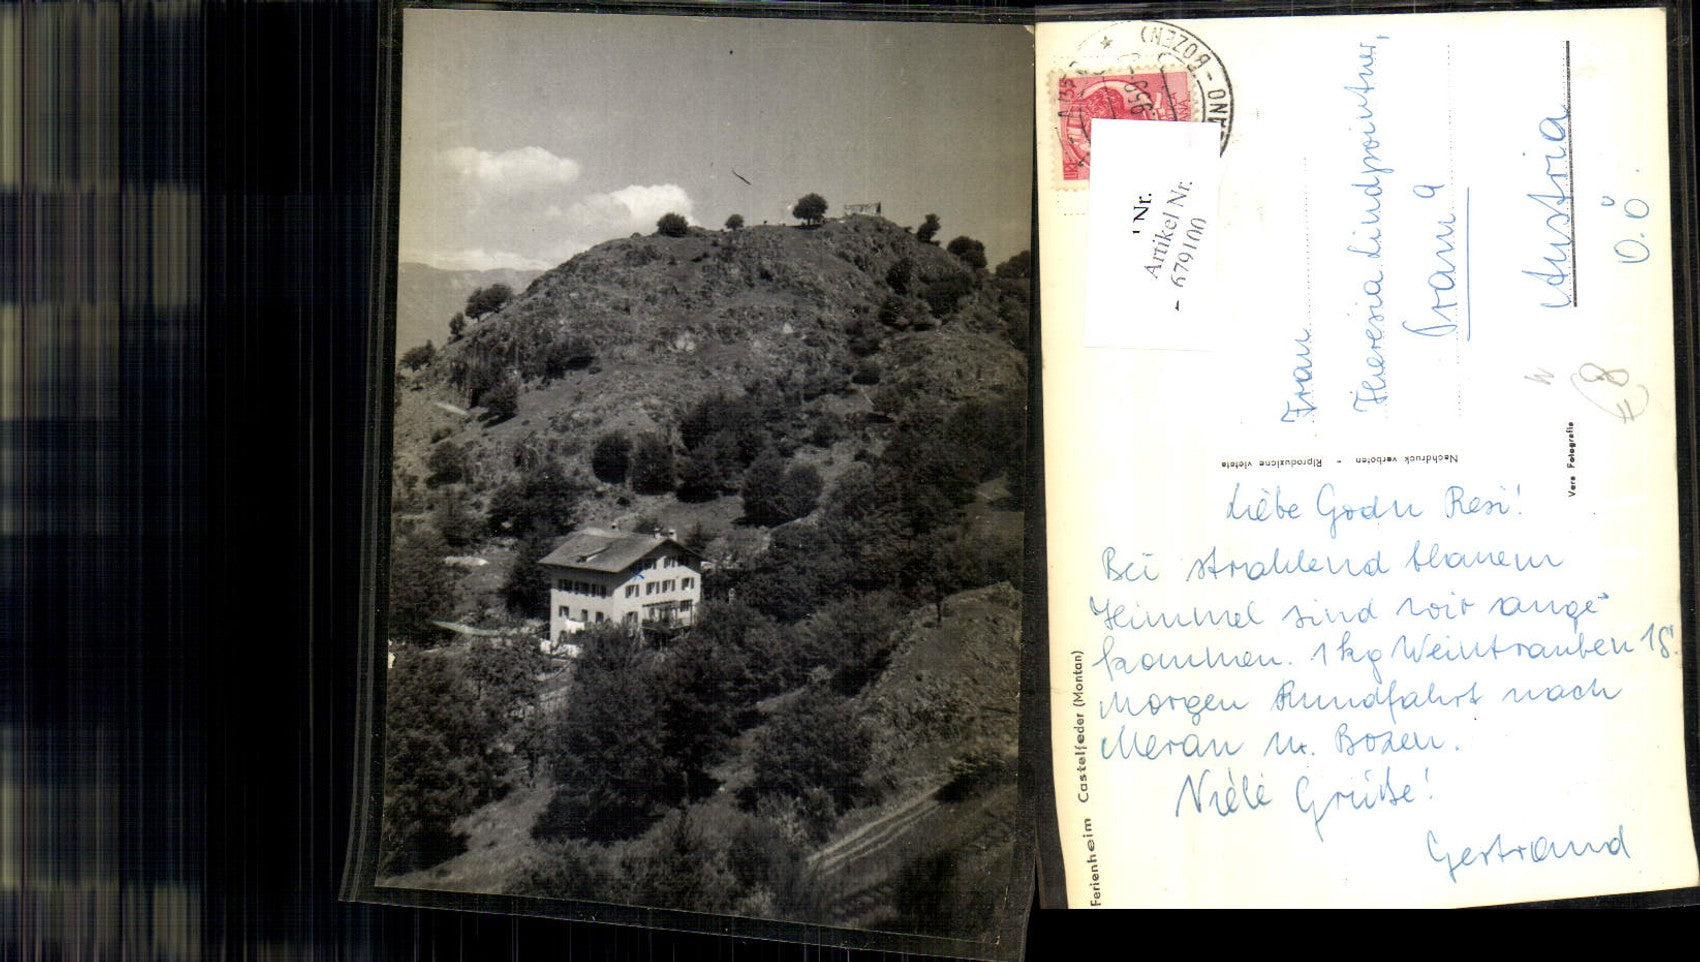 Liebe Godn Resi!
Bei strahlend blauem
Himmel sind wir ange-
kommen. 1 kg Weintrauben 18.
Morgen Rundfahrt nach
Meran u. Bozen.
Viele Grüße!
Gertraud
Frau
Theresia Lindpointner,
Pram 9
Austria
O.Ö.
Ferienheim Castelfeder (Montan)
Nachdruck verboten - Riproduzione vietata
Vera Fotografia
Nr.
Artikel Nr.
- 679100
BOZEN)